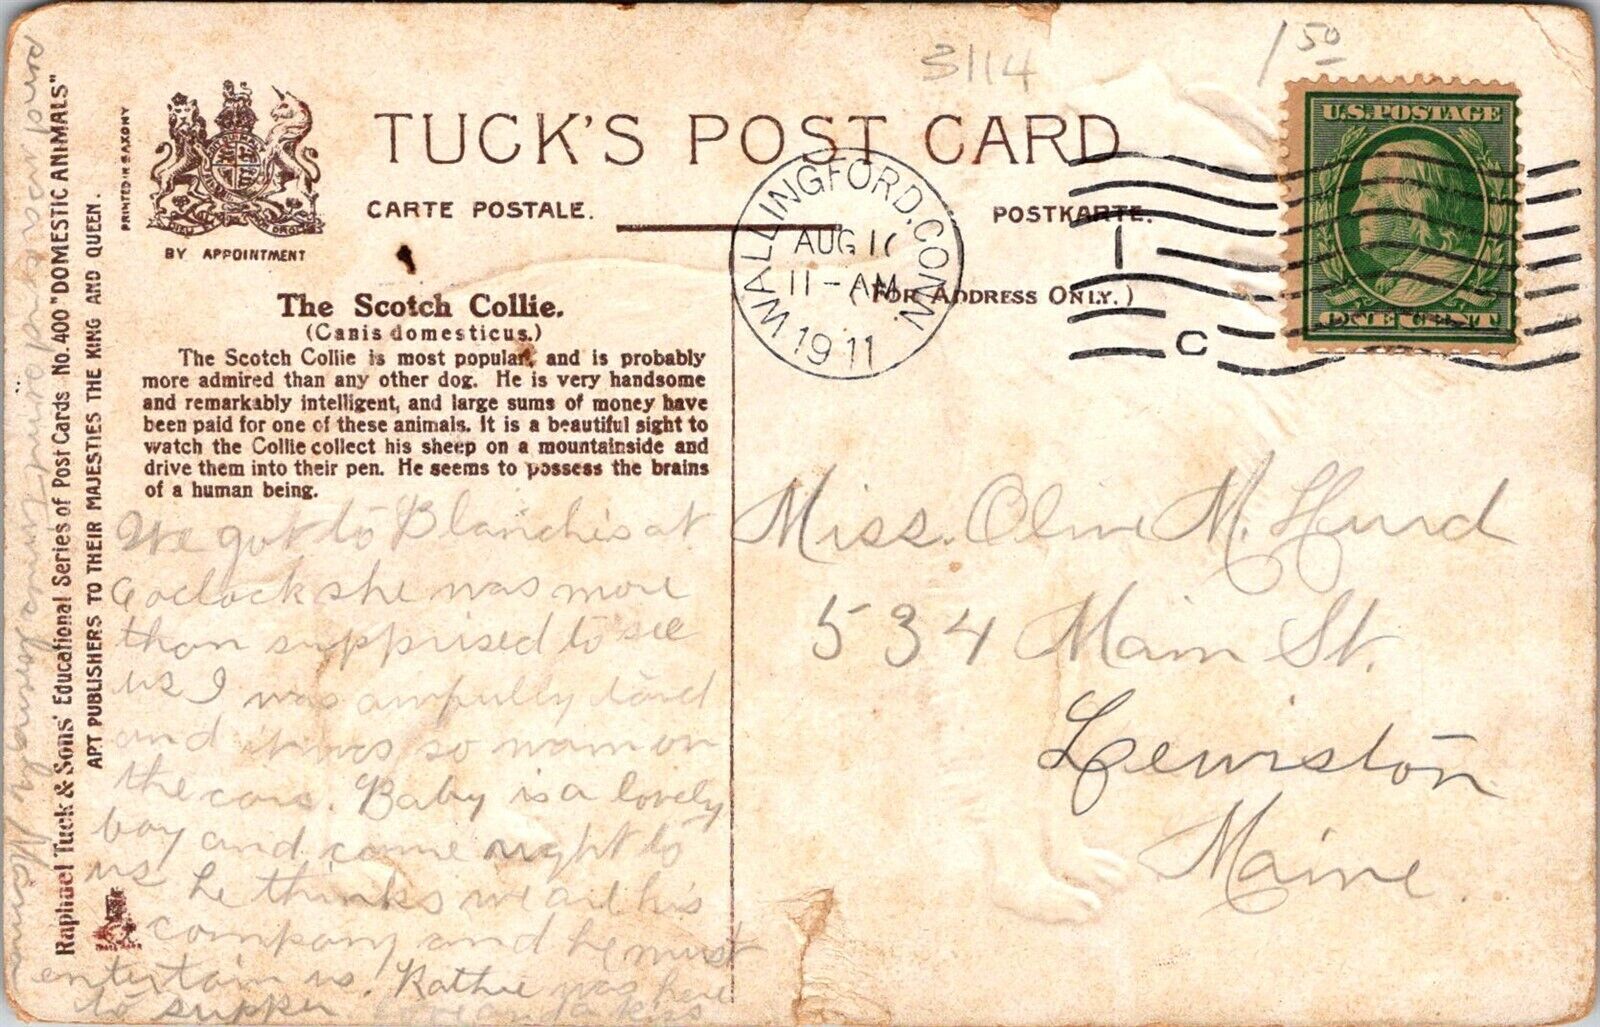 3114
1 50
TUCK'S POST CARD
CARTE POSTALE.
POSTKARTE.
(FOR ADDRESS ONLY.)
PRINTED IN SAXONY
BY APPOINTMENT
U.S. POSTAGE
ONE CENT
WALLINGFORD, CONN.
AUG 1
11-AM
1911
1
C
The Scotch Collie.
(Canis domesticus.)
The Scotch Collie is most popular, and is probably
more admired than any other dog. He is very handsome
and remarkably intelligent, and large sums of money have
been paid for one of these animals. It is a beautiful sight to
watch the Collie collect his sheep on a mountainside and
drive them into their pen. He seems to possess the brains
of a human being.
We got to Blanchis at
6 oclock she was more
than supprised to see
us I was awfully tired
and it was so warm on
the cars. Baby is a lovely
boy and came right to
us he thinks we are his
company and he must
entertain us. Kathie was here
to supper love and a kiss
Raphael Tuck & Sons' Educational Series of Post Cards No. 400 "DOMESTIC ANIMALS"
ART PUBLISHERS TO THEIR MAJESTIES THE KING AND QUEEN.
TRADE MARK
Miss. Olive M. Hurd
534 Main St.
Lewiston
Maine.